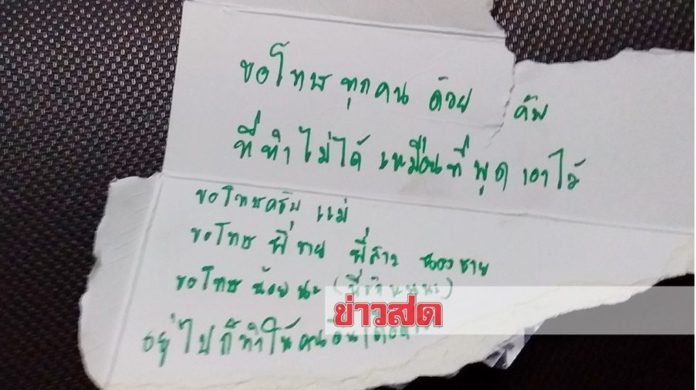 ขอโทษทุกคน ด้วย คับ
ที่ทำไม่ได้ เหมือนที่พูดเอาไว้
ขอโทษครับ แม่
ขอโทษ พี่ชาย พี่สาว น้องชาย
ขอโทษ น้อย นะ
ข่าวสด
อยู่ไปก็ทำให้คนอื่น